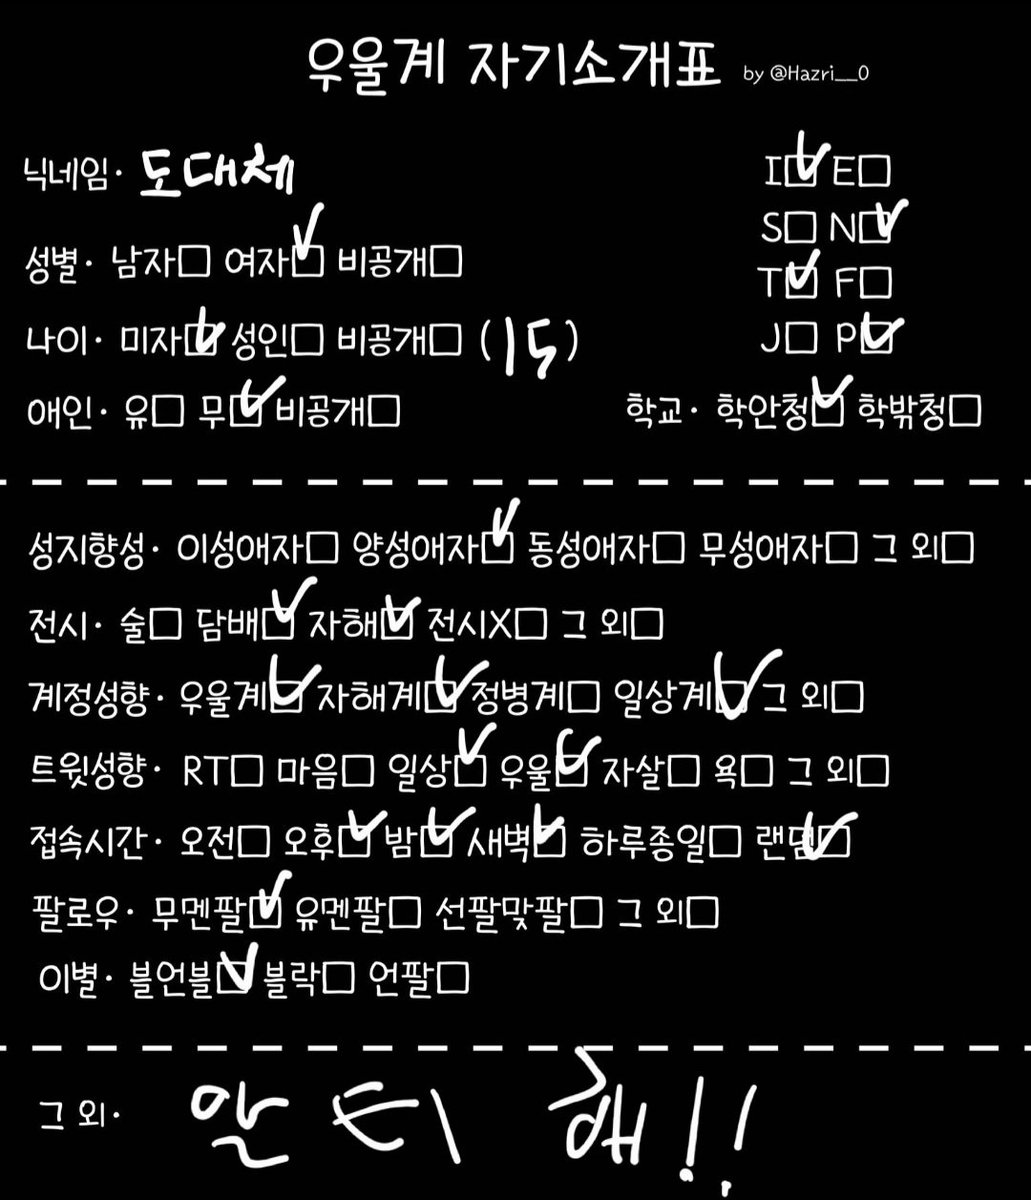 우울계 자기소개표 by @Hazri__0
닉네임· 도대체
I☑ E□
성별· 남자□ 여자☑ 비공개□
S□ N☑
T☑ F□
나이· 미자☑ 성인□ 비공개□ (15)
J□ P☑
애인· 유□ 무☑ 비공개□
학교· 학안청☑ 학밖청□
성지향성· 이성애자□ 양성애자☑ 동성애자□ 무성애자□ 그 외□
전시· 술□ 담배☑ 자해☑ 전시X□ 그 외□
계정성향· 우울계☑ 자해계☑ 정병계□ 일상계☑ 그 외□
트윗성향· RT□ 마음□ 일상☑ 우울☑ 자살□ 욕□ 그 외□
접속시간· 오전□ 오후☑ 밤☑ 새벽☑ 하루종일□ 랜덤☑
팔로우· 무멘팔☑ 유멘팔□ 선팔맞팔□ 그 외□
이별· 블언블☑ 블락□ 언팔□
그 외· 알티 해!!